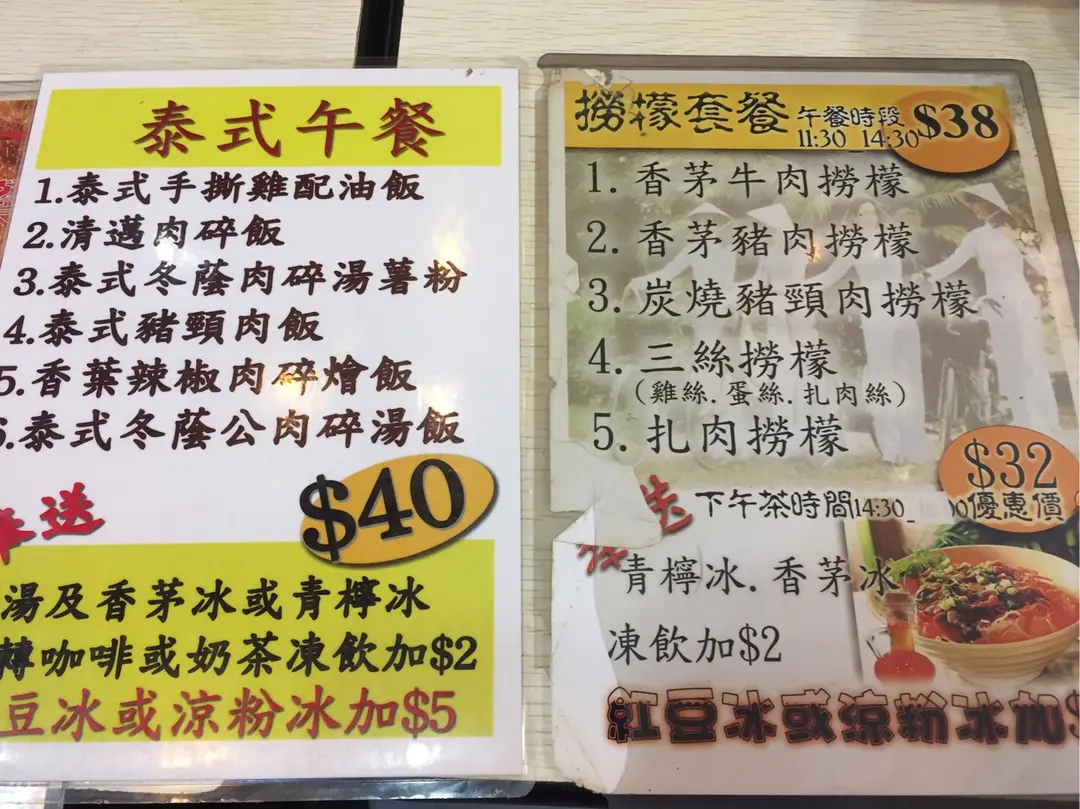 泰式午餐
1.泰式手撕雞配油飯
2.清邁肉碎飯
3.泰式冬蔭肉碎湯薯粉
4.泰式豬頸肉飯
5.香葉辣椒肉碎燴飯
6.泰式冬蔭公肉碎湯飯
送
$40
湯及香茅冰或青檸冰
轉咖啡或奶茶凍飲加$2
豆冰或涼粉冰加$5
撈檬套餐 午餐時段 11:30_14:30 $38
1. 香茅牛肉撈檬
2. 香茅豬肉撈檬
3. 炭燒豬頸肉撈檬
4. 三絲撈檬
(雞絲.蛋絲.扎肉絲)
5. 扎肉撈檬
$32
優惠價
送 下午茶時間14:30_
青檸冰.香茅冰
凍飲加$2
紅豆冰或涼粉冰加$